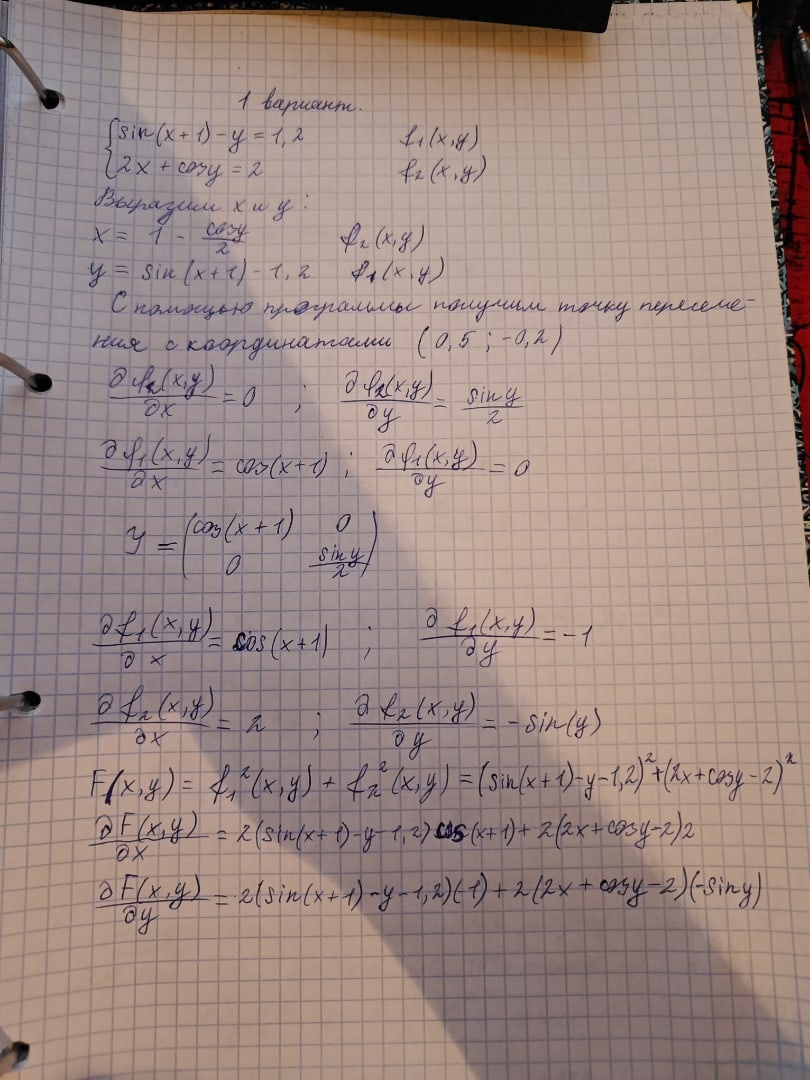 1 вариант.
{ sin(x+1)-y=1,2 f1(x,y)
2x+cosy=2 f2(x,y)
Выразим x и y:
x = 1 - cosy/2 f2(x,y)
y = sin(x+1)-1,2 f1(x,y)
С помощью программы получим точку пересече-
ния с координатами (0,5 ; -0,2)
∂f2(x,y)/∂x = 0 ; ∂f2(x,y)/∂y = siny/2
∂f1(x,y)/∂x = cos(x+1) ; ∂f1(x,y)/∂y = 0
Y = (cos(x+1) 0
0 siny/2)
∂f1(x,y)/∂x = cos(x+1) ; ∂f1(x,y)/∂y = -1
∂f2(x,y)/∂x = 2 ; ∂f2(x,y)/∂y = -sin(y)
F(x,y) = f1²(x,y) + f2²(x,y) = (sin(x+1)-y-1,2)²+(2x+cosy-2)²
∂F(x,y)/∂x = 2(sin(x+1)-y-1,2)cos(x+1)+2(2x+cosy-2)2
∂F(x,y)/∂y = 2(sin(x+1)-y-1,2)(-1)+2(2x+cosy-2)(-siny)